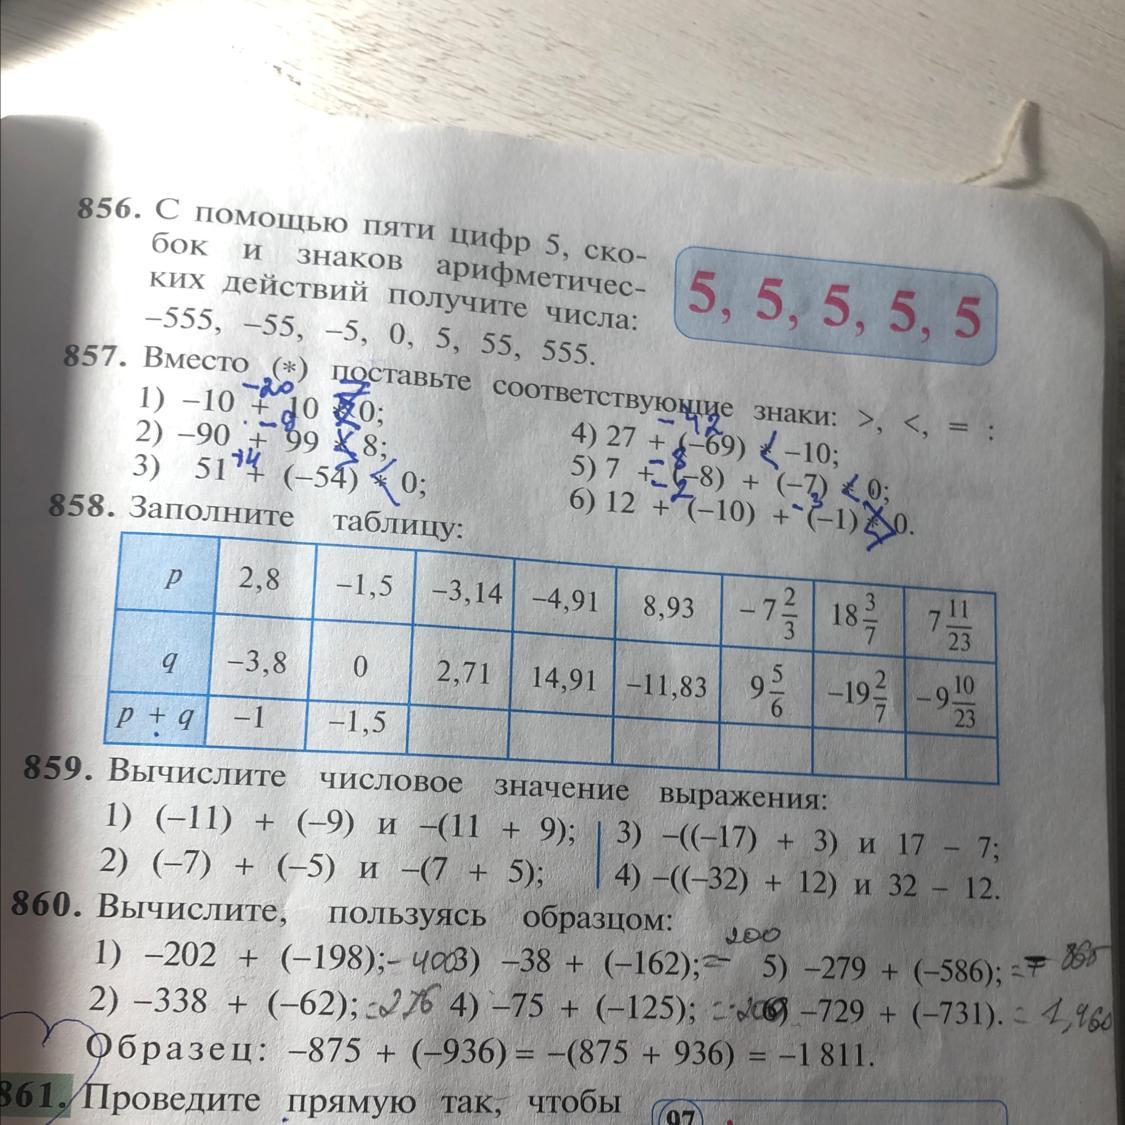 856. С помощью пяти цифр 5, ско-
бок и знаков арифметичес-
ких действий получите числа:
–555, –55, –5, 0, 5, 55, 555.
5, 5, 5, 5, 5
857. Вместо (*) поставьте соответствующие знаки: >, <, = :
1) –10 + 10 0;
2) –90 + 99 8;
3) 51 + (–54) * 0;
4) 27 + (–69) < –10;
5) 7 + (–8) + (–7) < 0;
6) 12 + (–10) + (–1) 0.
–20
–9
–42
–8
–2
–3
858. Заполните таблицу:
p 2,8 –1,5 –3,14 –4,91 8,93 –7 2/3 18 3/7 7 11/23
q –3,8 0 2,71 14,91 –11,83 9 5/6 –19 2/7 –9 10/23
p + q –1 –1,5
859. Вычислите числовое значение выражения:
1) (–11) + (–9) и –(11 + 9);
2) (–7) + (–5) и –(7 + 5);
3) –((–17) + 3) и 17 – 7;
4) –((–32) + 12) и 32 – 12.
860. Вычислите, пользуясь образцом:
1) –202 + (–198); –400 3) –38 + (–162); = –200 5) –279 + (–586); =
2) –338 + (–62); =276 4) –75 + (–125); = –729 + (–731). = 1,460
Образец: –875 + (–936) = –(875 + 936) = –1 811.
861. Проведите прямую так, чтобы
97